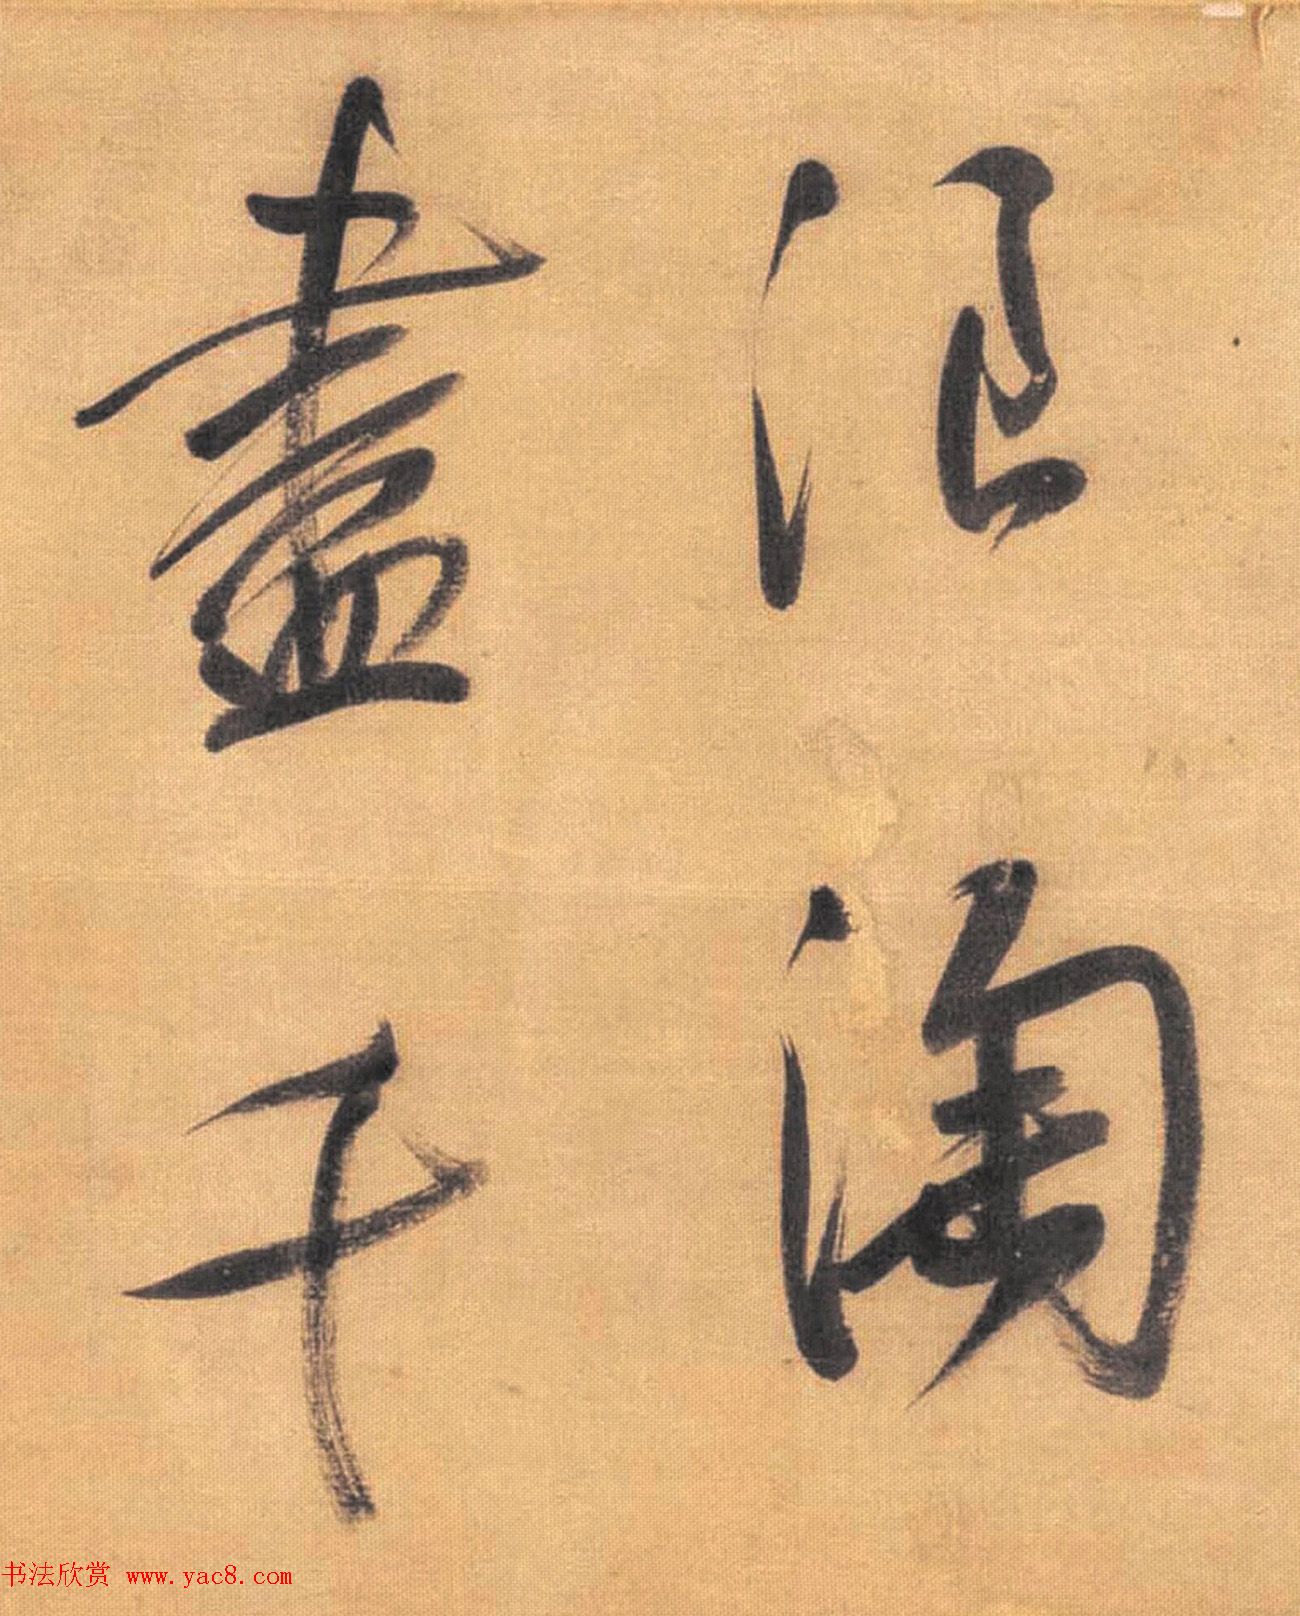 浪淘
盡千
书法欣赏 www.yac8.com